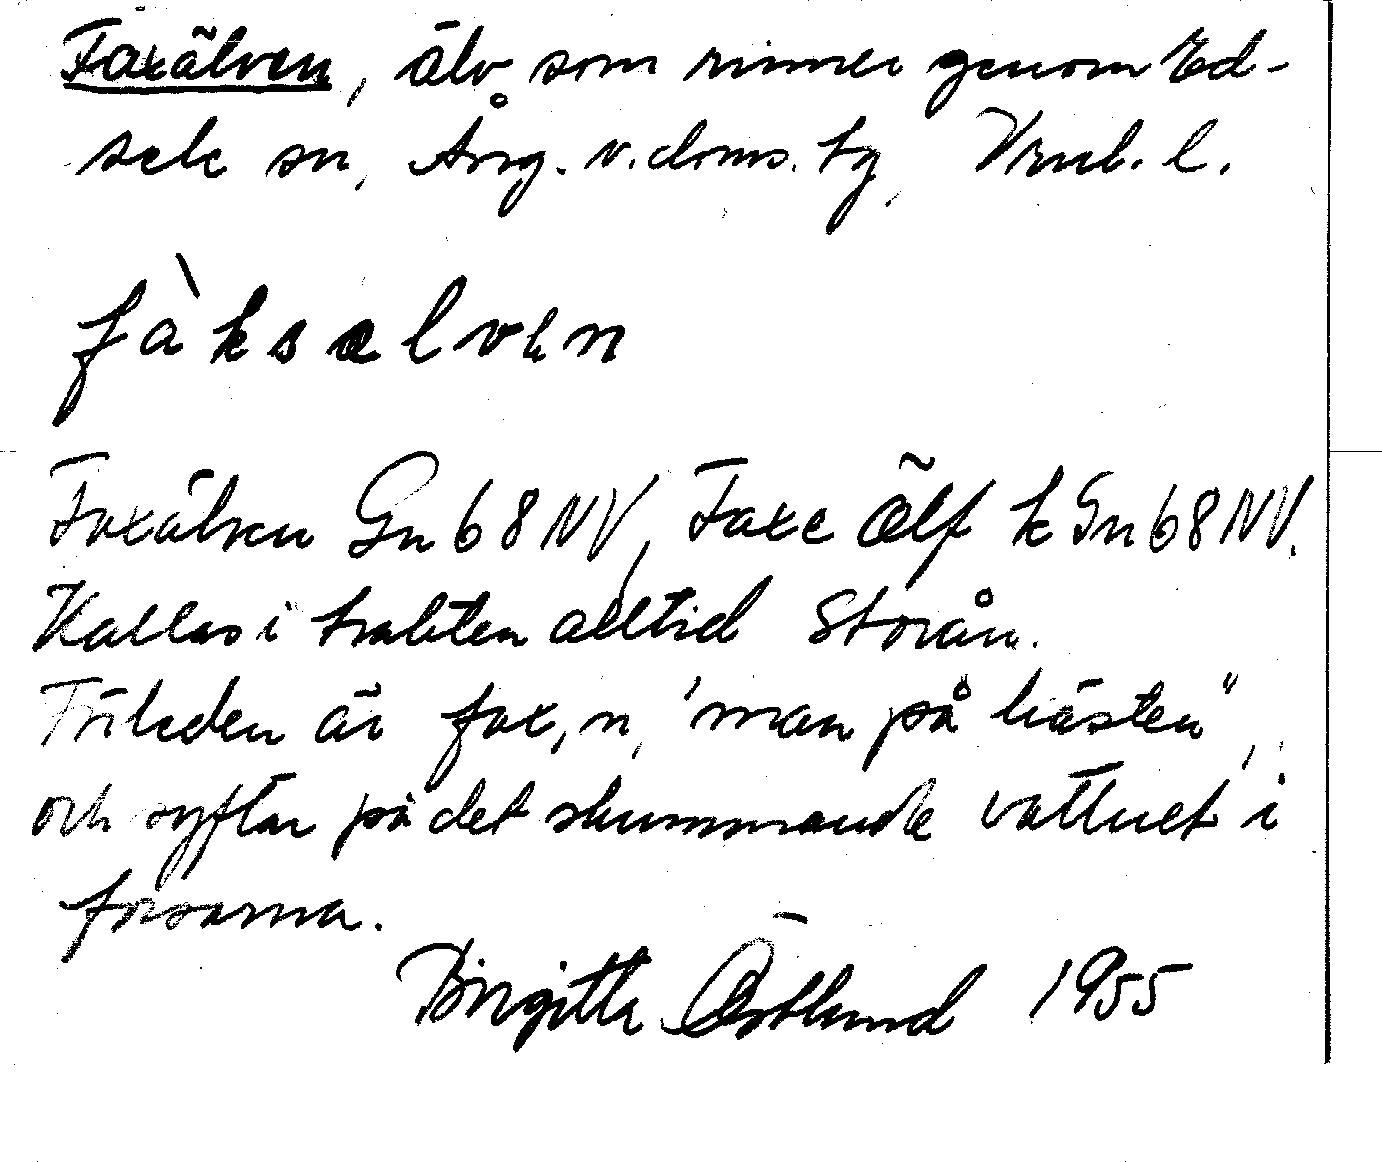 Faxälven, älv som rinner genom Ed-
sele sn, Ång. v. doms. tg, Vrnl. l.
fàksælvɛn
Faxälven Gn 68 NV, Faxe Älf k Gn 68 NV.
Kallas i trakten alltid Storån.
Förleden är fax, n, 'man på hästen",
och syftar på det skummande vattnet i
forsarna.
Birgitta Östlund 1955